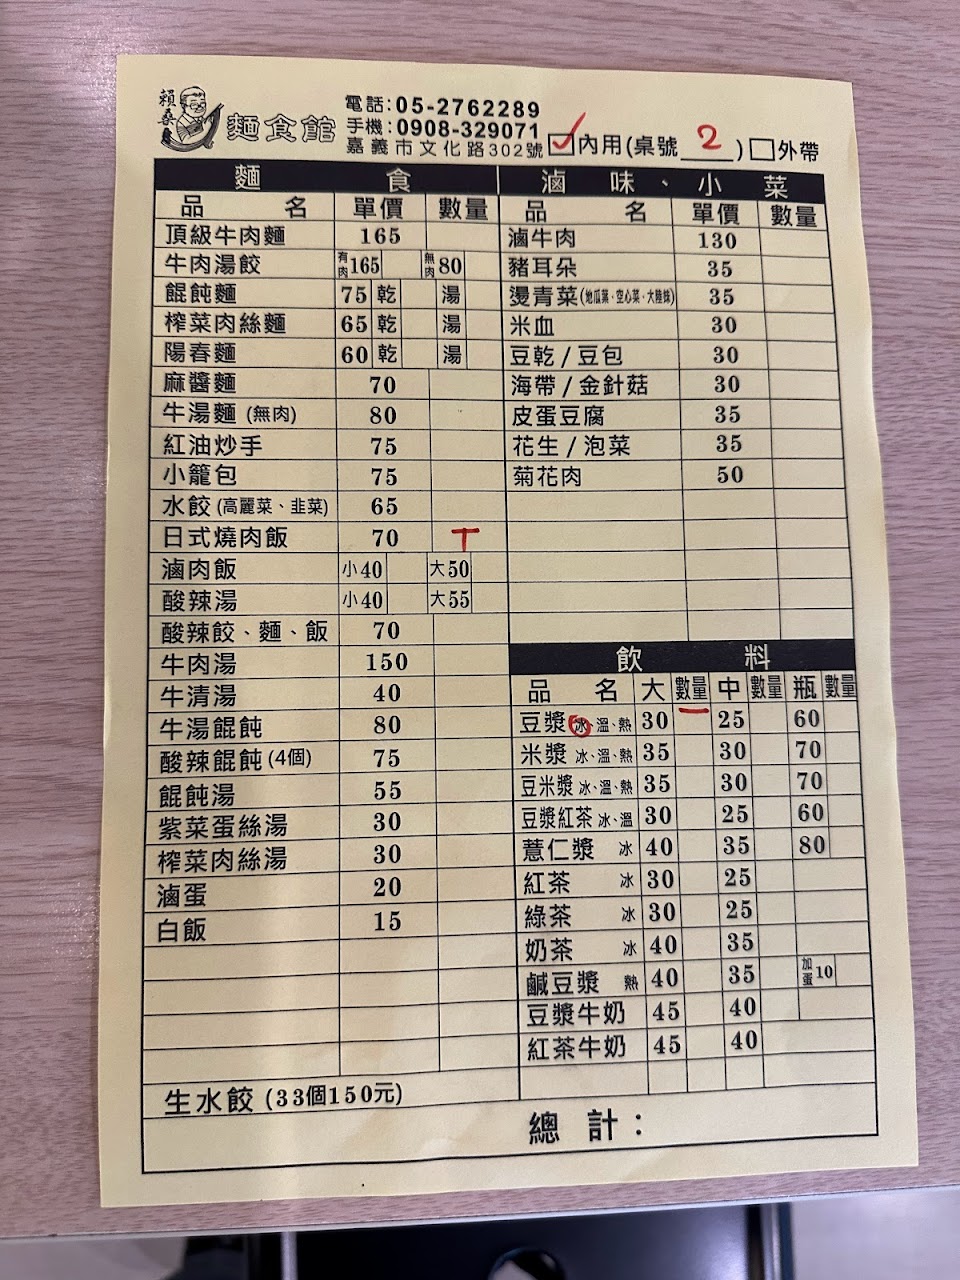 賴桑 麵食館
電話:05-2762289
手機:0908-329071
嘉義市文化路302號 ✓內用(桌號 2 ) □外帶
麵 食
品 名 單價 數量
頂級牛肉麵 165
牛肉湯餃 有肉165 無肉80
餛飩麵 75 乾 湯
榨菜肉絲麵 65 乾 湯
陽春麵 60 乾 湯
麻醬麵 70
牛湯麵 (無肉) 80
紅油炒手 75
小籠包 75
水餃(高麗菜、韭菜) 65
日式燒肉飯 70 T
滷肉飯 小40 大50
酸辣湯 小40 大55
酸辣餃、麵、飯 70
牛肉湯 150
牛清湯 40
牛湯餛飩 80
酸辣餛飩(4個) 75
餛飩湯 55
紫菜蛋絲湯 30
榨菜肉絲湯 30
滷蛋 20
白飯 15
生水餃 (33個150元)
滷 味、小 菜
品 名 單價 數量
滷牛肉 130
豬耳朵 35
燙青菜(地瓜葉、空心菜、大陸妹) 35
米血 30
豆乾/豆包 30
海帶/金針菇 30
皮蛋豆腐 35
花生/泡菜 35
菊花肉 50
飲 料
品 名 大 數量 中 數量 瓶 數量
豆漿 冰、溫、熱 30 一 25 60
米漿 冰、溫、熱 35 30 70
豆米漿 冰、溫、熱 35 30 70
豆漿紅茶 冰、溫 30 25 60
薏仁漿 冰 40 35 80
紅茶 冰 30 25
綠茶 冰 30 25
奶茶 冰 40 35
鹹豆漿 熱 40 35 加蛋10
豆漿牛奶 45 40
紅茶牛奶 45 40
總 計: